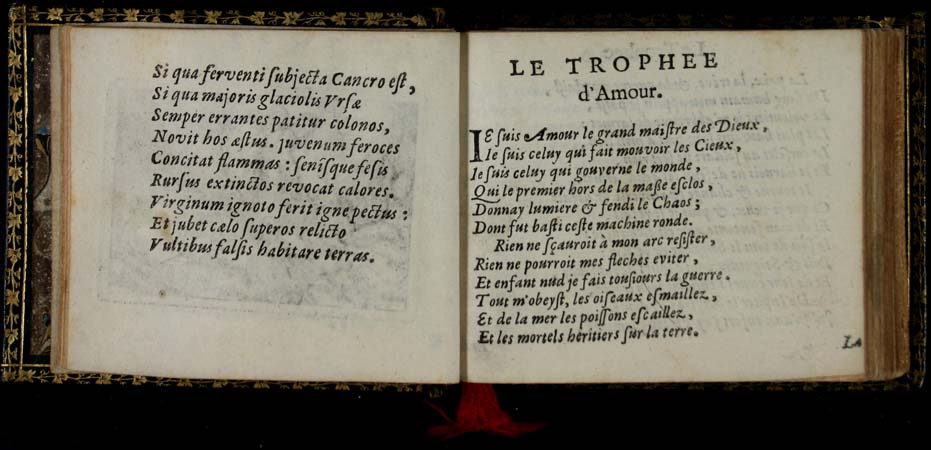 Si qua ferventi ſubjecta Cancro eſt,
Si qua majoris glaciolis Vrſæ
Semper errantes patitur colonos,
Novit hos æſtus. juvenum feroces
Concitat flammas: ſeniſque feſis
Rurſus extinctos revocat calores.
Virginum ignoto ferit igne pectus:
Et jubet cælo ſuperos relicto
Vultibus falſis habitare terras.
LE TROPHEE
d'Amour.
IE ſuis Amour le grand maiſtre des Dieux,
Ie ſuis celuy qui fait mouvoir les Cieux,
Ie ſuis celuy qui gouverne le monde,
Qui le premier hors de la maſſe eſclos,
Donnay lumiere & fendi le Chaos;
Dont fut baſti ceſte machine ronde.
Rien ne ſçauroit à mon arc reſiſter,
Rien ne pourroit mes fleches eviter,
Et enfant nud je fais touſiours la guerre.
Tout m'obeyſt, les oiſeaux eſmaillez,
Et de la mer les poiſſons eſcaillez,
Et les mortels héritiers ſur la terre.
La